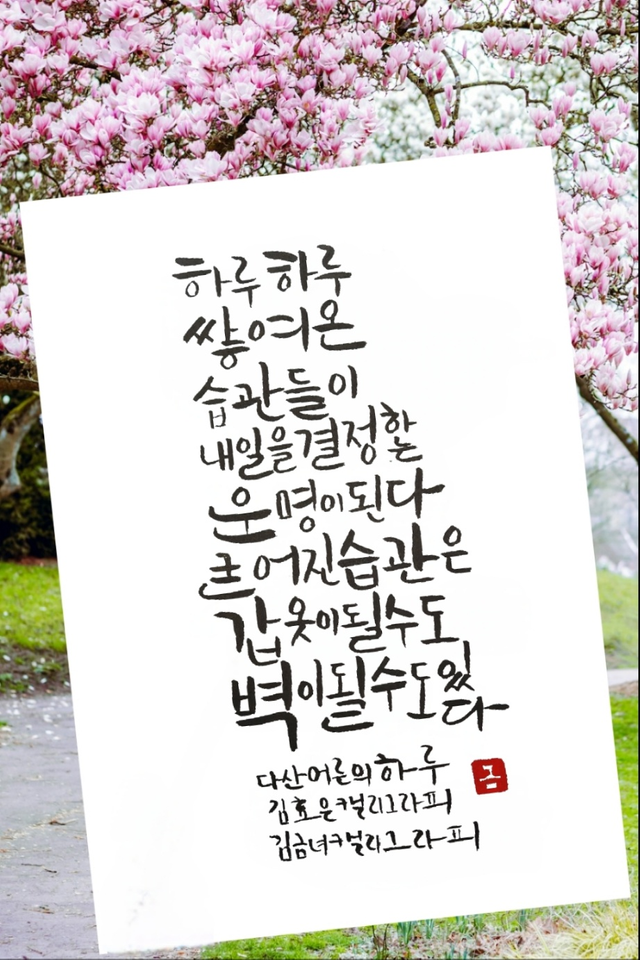 하루하루
쌓여온
습관들이
내일을결정하는
운명이된다
흐어진습관은
갑옷이될수도
벽이될수도있
다
다산어른의하루
김효은캘리그라피
김금녀캘리그라피
금